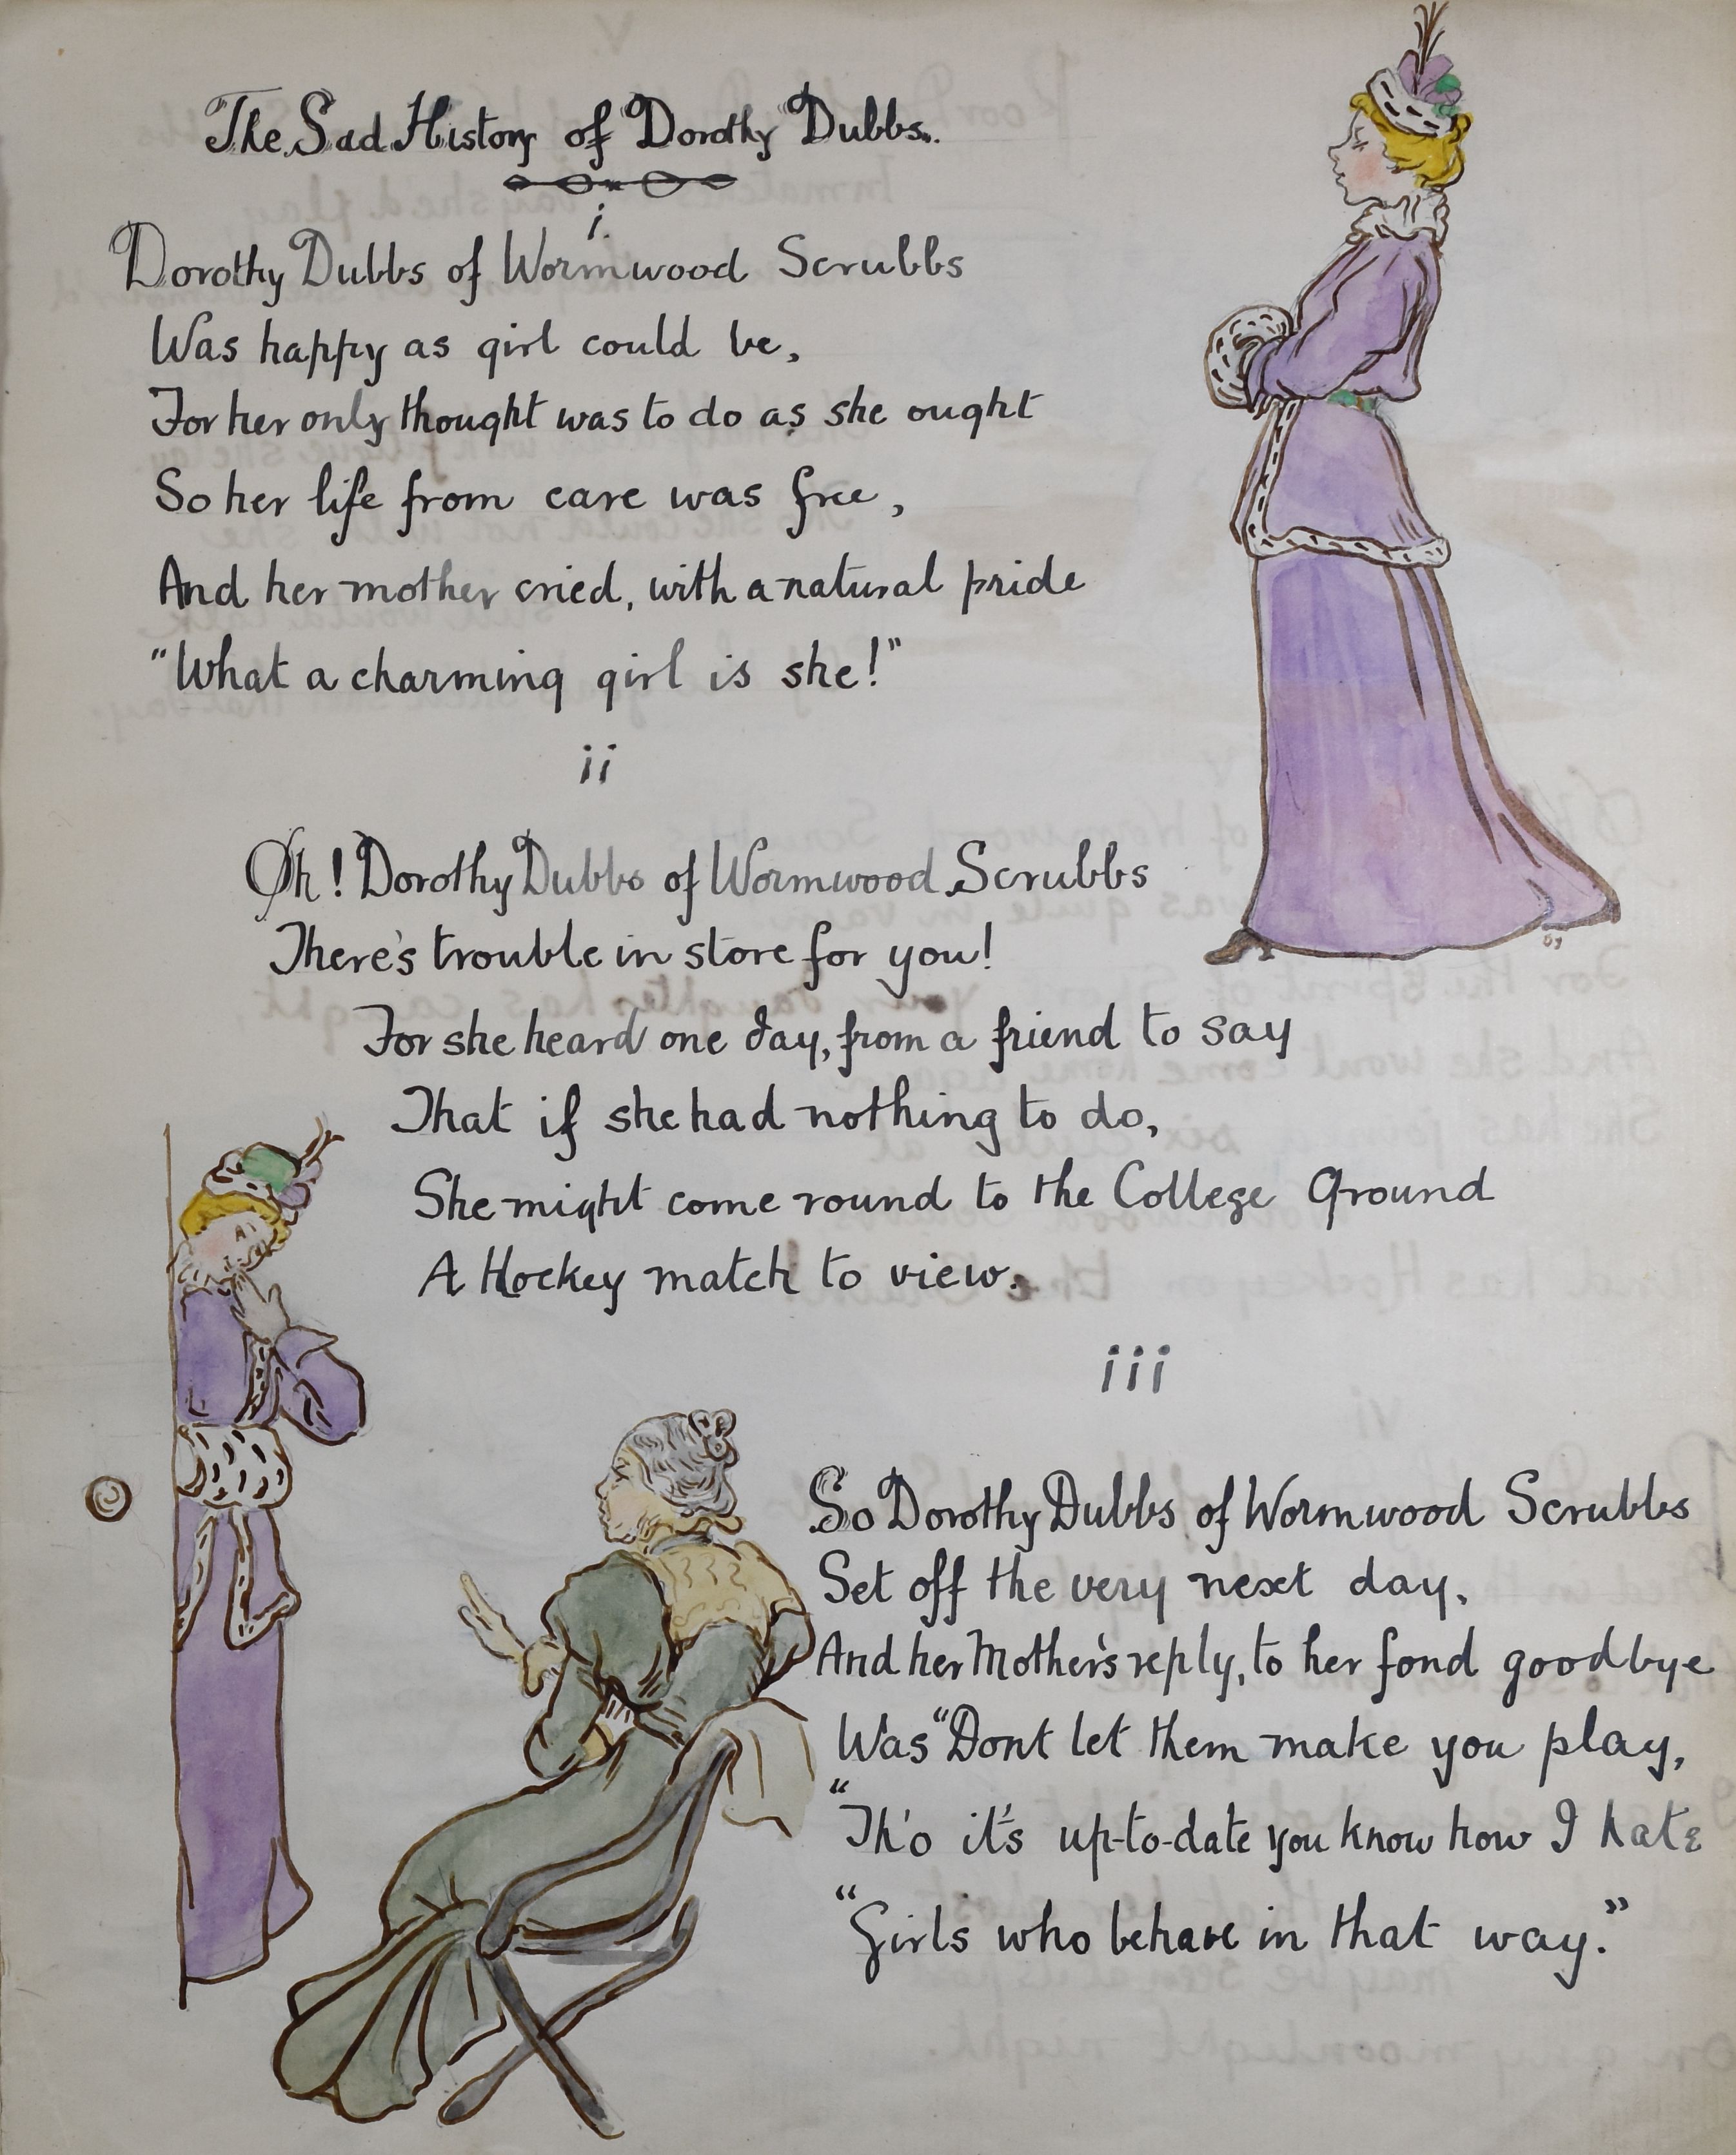 The Sad History of Dorothy Dubbs.
i.
Dorothy Dubbs of Wormwood Scrubbs
Was happy as girl could be,
For her only thought was to do as she ought
So her life from care was free,
And her mother cried, with a natural pride
"What a charming girl is she!"
ii
Oh! Dorothy Dubbs of Wormwood Scrubbs
There's trouble in store for you!
For she heard one day, from a friend to say
That if she had nothing to do,
She might come round to the College Ground
A Hockey match to view.
iii
So Dorothy Dubbs of Wormwood Scrubbs
Set off the very next day,
And her Mother's reply, to her fond goodbye
Was "Dont let them make you play,
"Th'o it's up-to-date you know how I hate
"Girls who behave in that way."